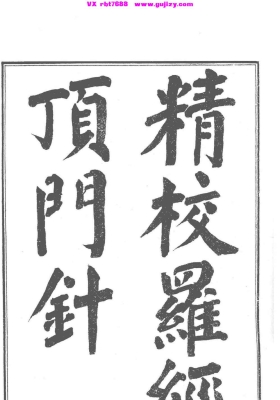 VX rbt7688 www.gujizy.com
精校羅經
頂門針